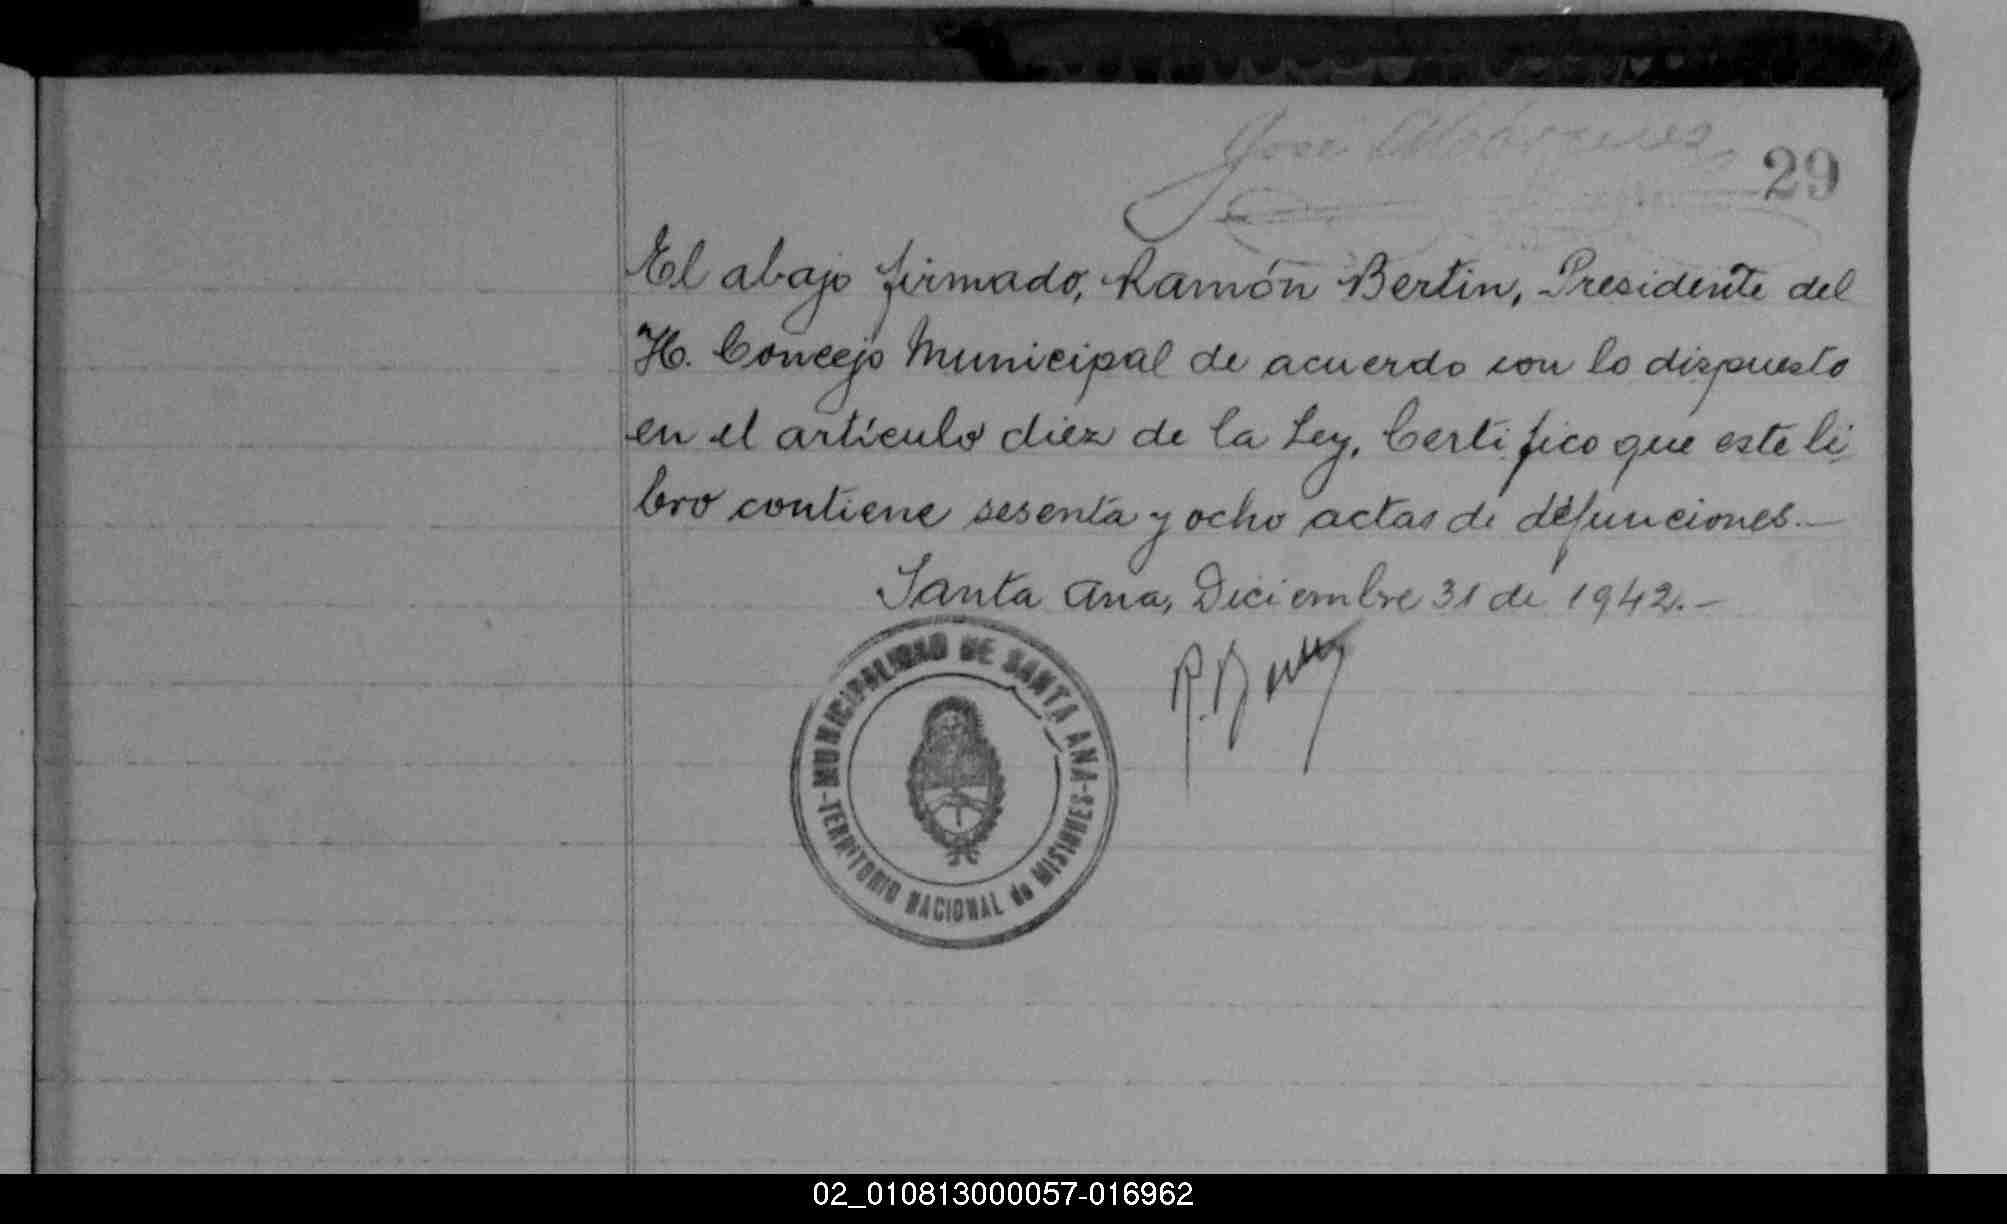 Jose
29
El abajo firmado, Ramón Bertin, Presidente del
H. Concejo Municipal de acuerdo con lo dispuesto
en el artículo diez de la Ley, Certifico que este li-
bro contiene sesenta y ocho actas de defunciones.—
Santa Ana, Diciembre 31 de 1942.-
R. Bertin
MUNICIPALIDAD DE SANTA ANA
TERRITORIO NACIONAL de MISIONES
02_010813000057-016962